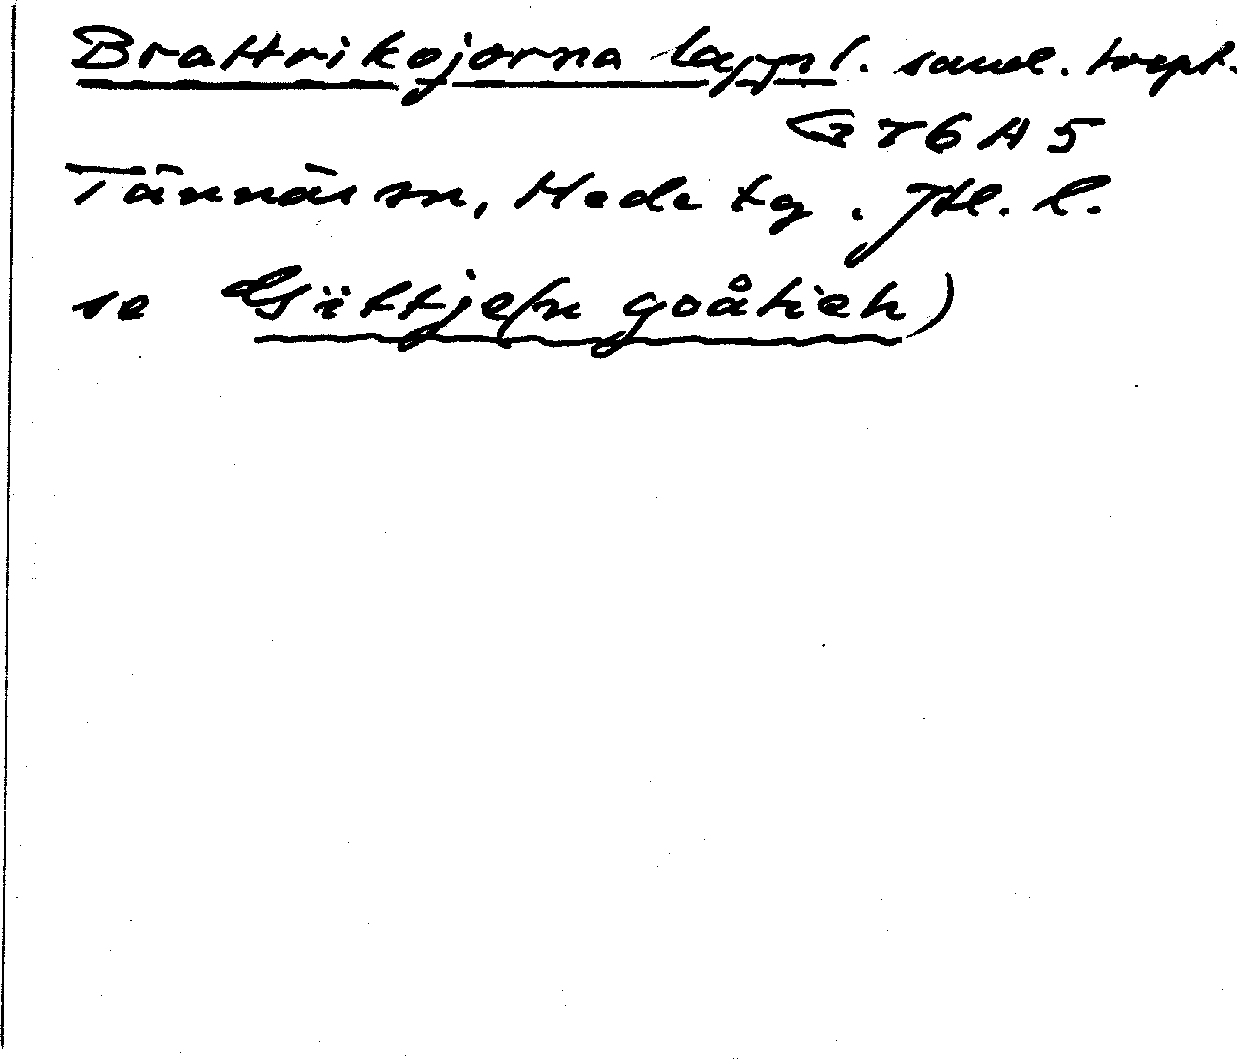 Brattrikojorna lappl. saml. topt.
G 76 A 5
Tännäs sn, Hede tg. Jtl. l.
se Gïttje(n goåtieh)